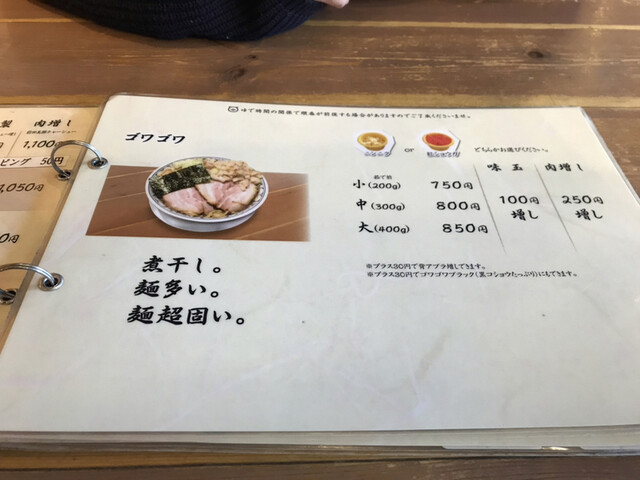 ゆで時間の関係で順番が前後する場合がありますのでご了承くださいませ。
ゴワゴワ
or
どちらかお選びください。
味玉 肉増し
茹で前
小(200g) 750円
中(300g) 800円 100円増し 250円増し
大(400g) 850円
※プラス30円で背アブラ増しできます。
※プラス30円でゴワゴワブラック(黒コショウたっぷり)にもできます。
煮干し。
麺多い。
麺超固い。
製 肉増し
1,100円
ピング 50円
,050円
0円